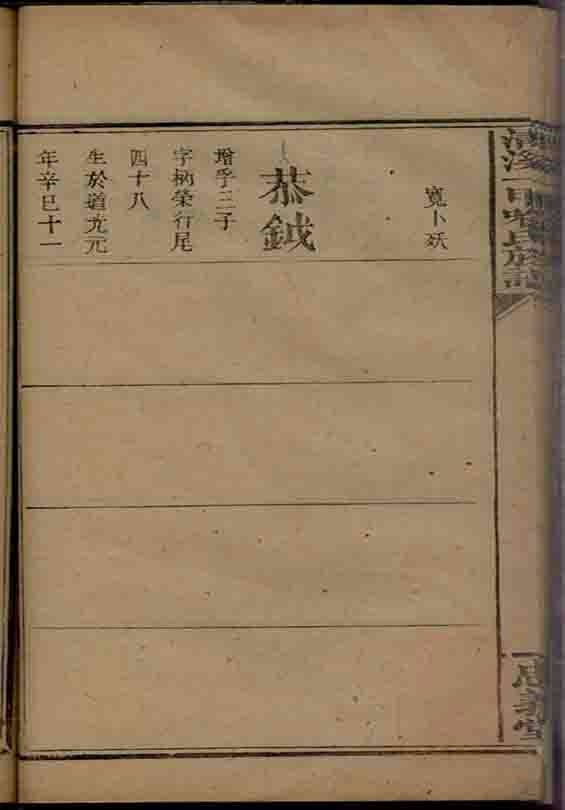 寬卜殀
恭鉞
增孚三子
字柄榮行尾
四十八
生於道光元
年辛巳十一
忠義堂